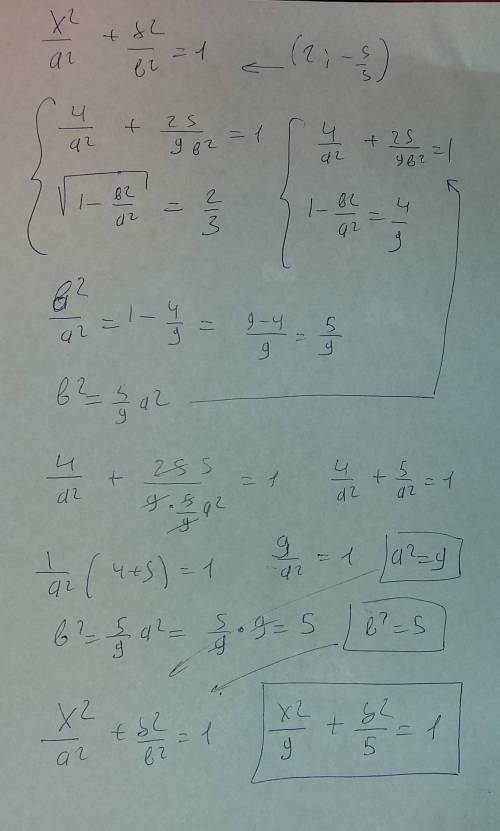 x²/a² + y²/b² = 1 ← (2; -5/3)
{ 4/a² + 25/9b² = 1 { 4/a² + 25/9b² = 1
√(1 - b²/a²) = 2/3 1 - b²/a² = 4/9
b²/a² = 1 - 4/9 = (9-4)/9 = 5/9
b² = 5/9 a²
4/a² + 25 5/(9·5/9 a²) = 1 4/a² + 5/a² = 1
1/a² (4+5) = 1 9/a² = 1 a² = 9
b² = 5/9 a² = 5/9 · 9 = 5 b² = 5
x²/a² + y²/b² = 1 x²/9 + y²/5 = 1